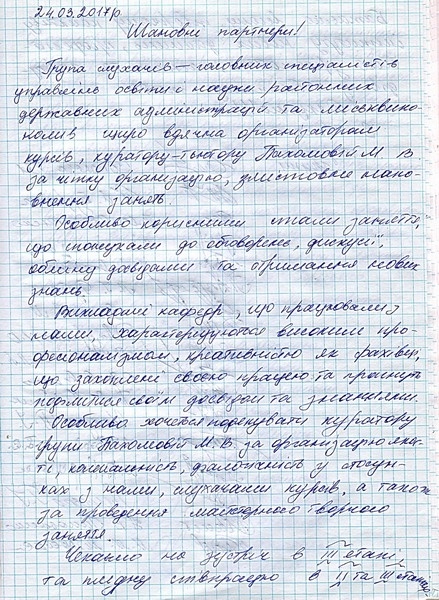 24.03.2017р
Шановні партнери!
Група слухачів – головних спеціалістів
управлінь освіти і науки районних
державних адміністрацій та міськвико-
нкомів щиро вдячна організаторам
курсів, куратору-тьютору Пахомовій М. В
за чітку організацію, змістовне напов-
внення занять.
Особливо корисними стали заняття,
що спонукали до обговорень, дискусії,
обміну досвідами та отримання нових
знань.
Викладачі кафедр, що працювали з
нами, характеризуються високим про-
фесіоналізмом, креативністю як фахівці,
що захоплені своєю працею та прагнуть
поділитися своїм досвідом та знаннями.
Особливо хочеться подякувати куратору
групи Пахомовій М. В. за організацію
комунікальність, діалогічність у стосун-
ках з нами, слухачами курсів, а також
за проведення майстерного творчого
заняття.
Чекаємо на зустріч в III етапі,
та плідну співпрацю в II та III етапах